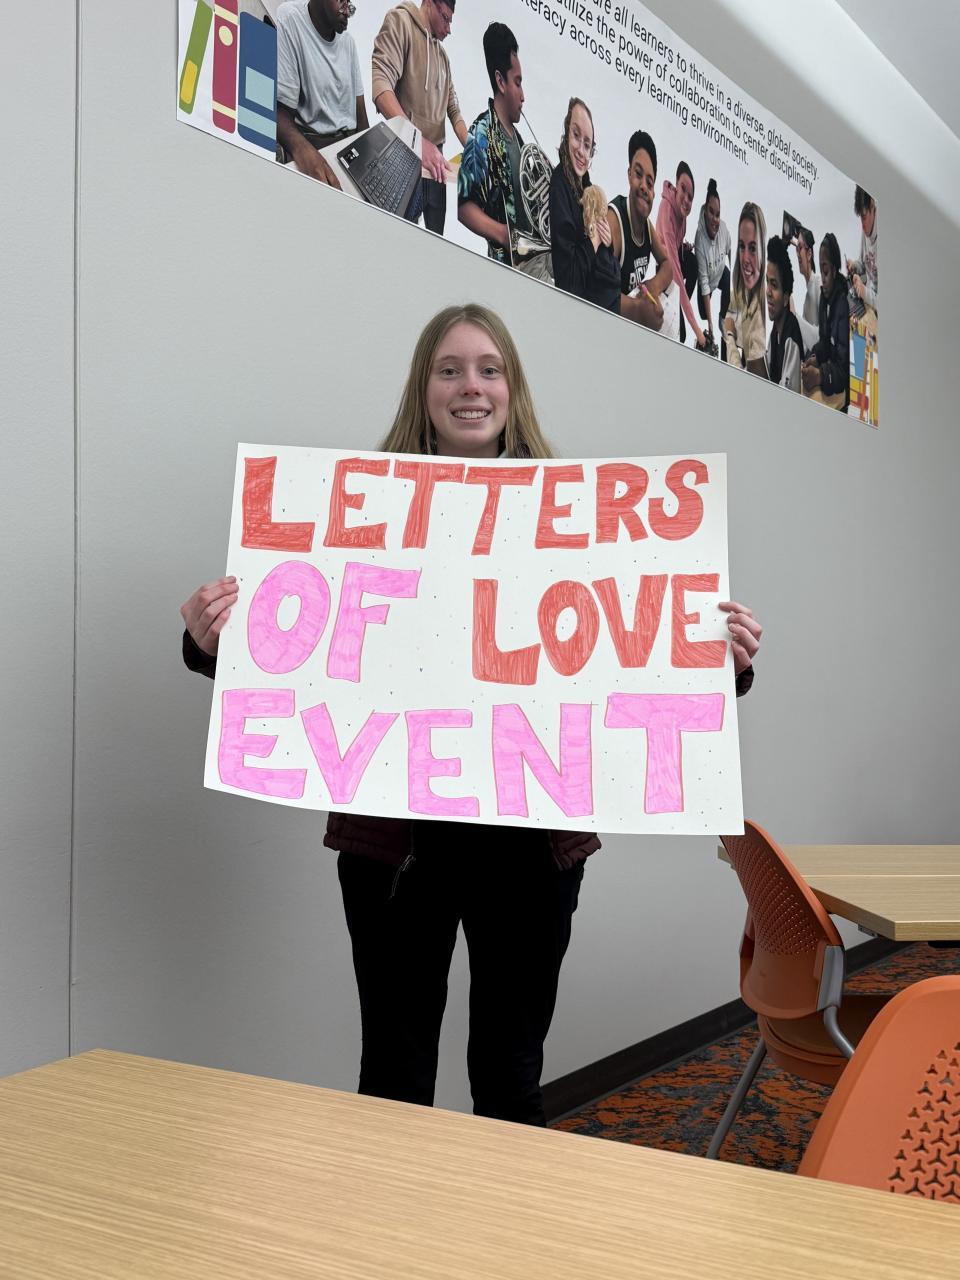 are all learners to thrive in a diverse, global society.
utilize the power of collaboration to center disciplinary
literacy across every learning environment.
LETTERS
OF LOVE
EVENT